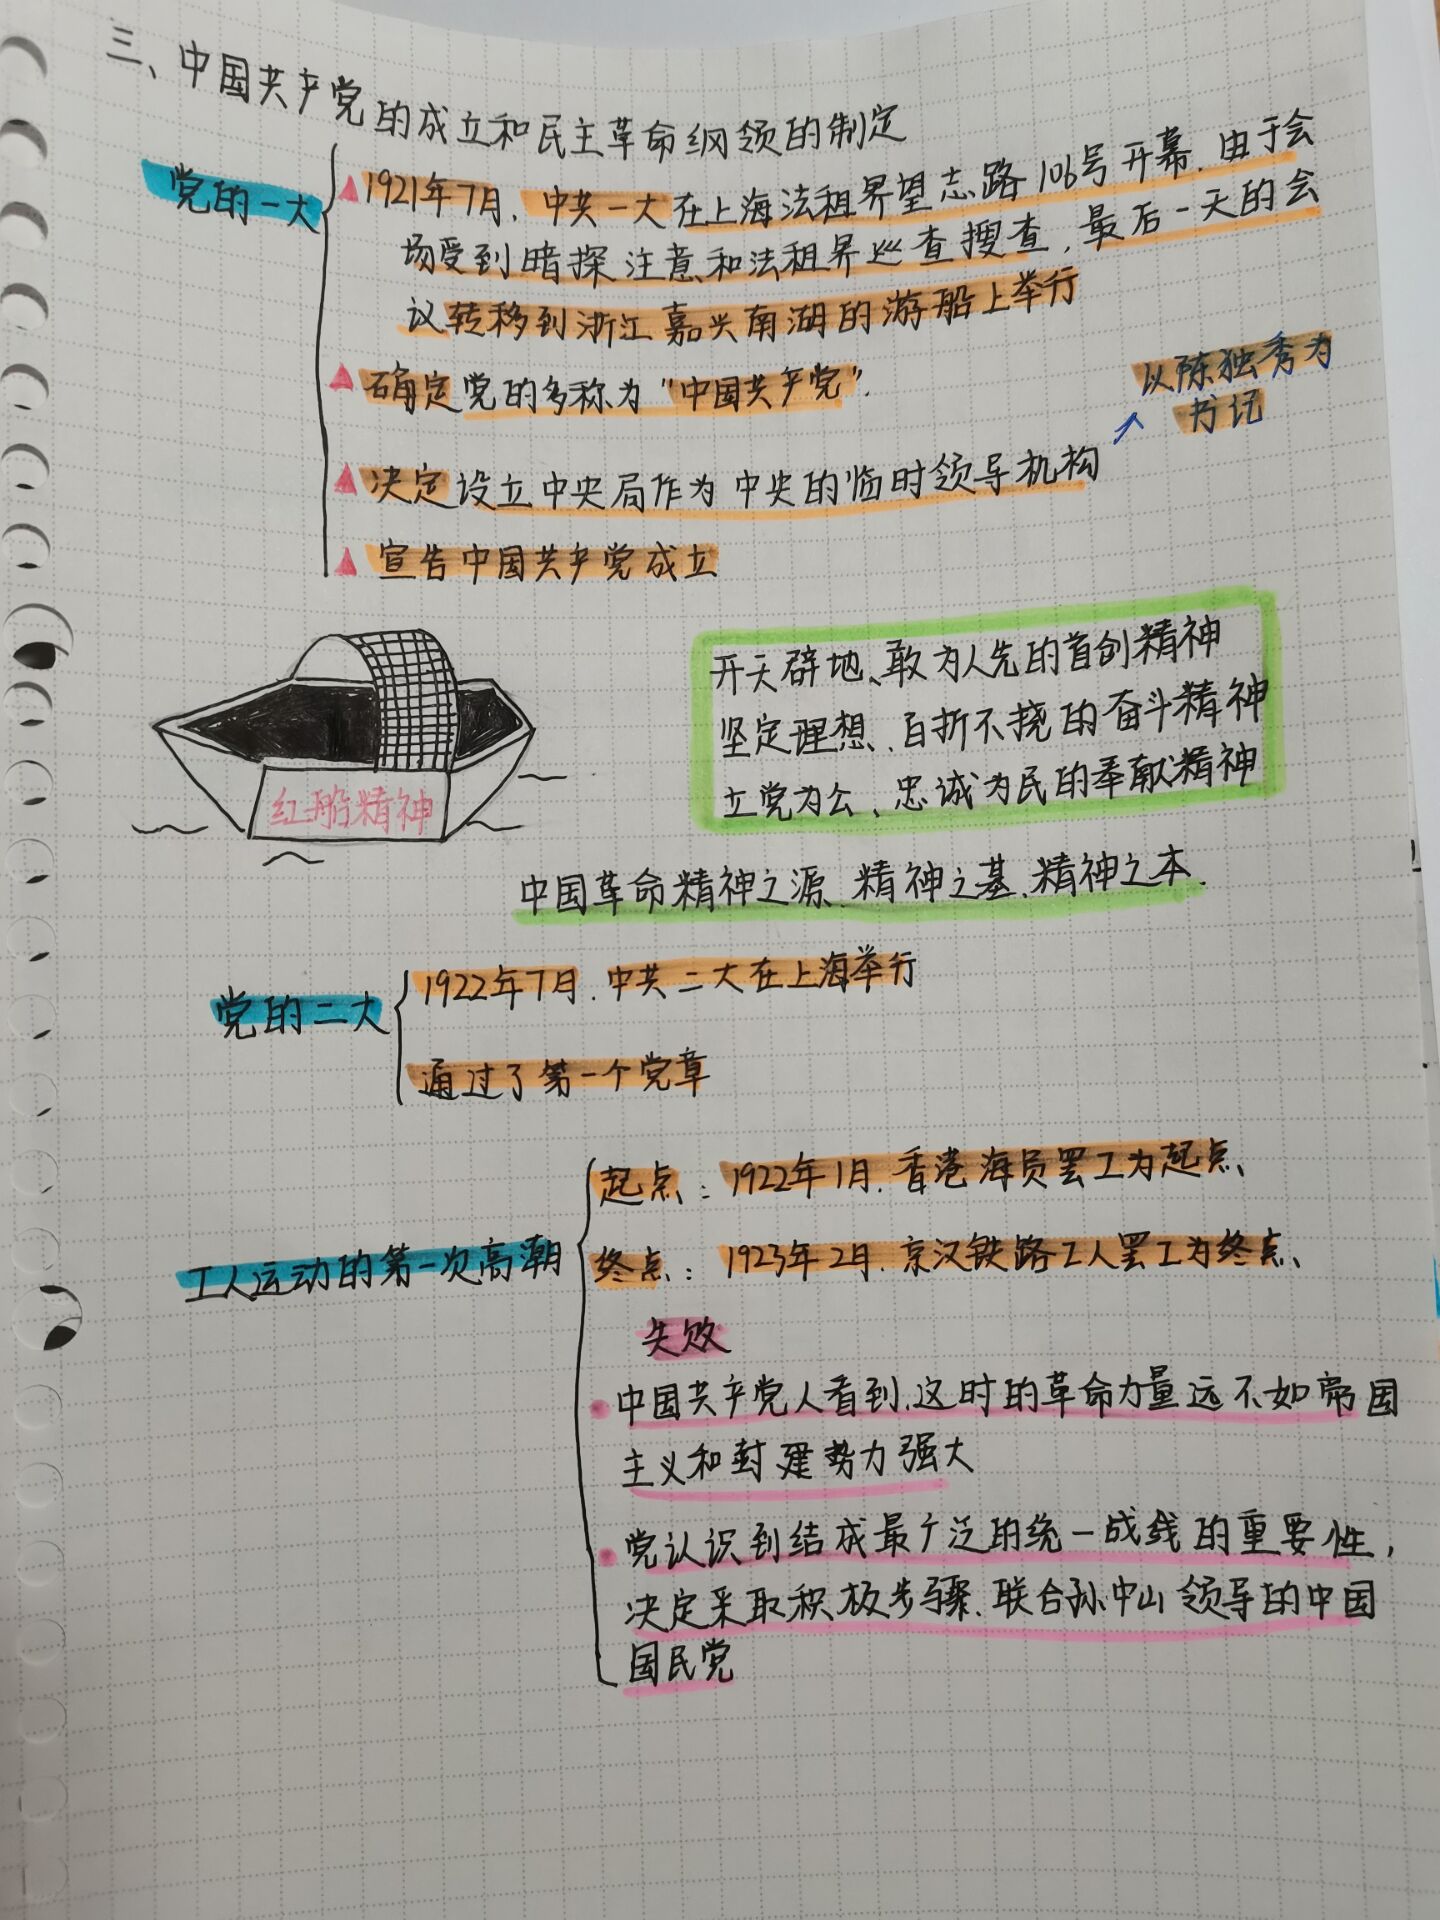 三、中国共产党的成立和民主革命纲领的制定
党的一大
1921年7月，中共一大在上海法租界望志路106号开幕，由于会
场受到暗探注意和法租界巡查搜查，最后一天的会
议转移到浙江嘉兴南湖的游船上举行
确定党的名称为“中国共产党”.
以陈独秀为
书记
决定设立中央局作为中央的临时领导机构
宣告中国共产党成立
红船精神
开天辟地、敢为人先的首创精神
坚定理想、百折不挠的奋斗精神
立党为公、忠诚为民的奉献精神
中国革命精神之源、精神之基、精神之本.
党的二大
1922年7月，中共二大在上海举行
通过了第一个党章
工人运动的第一次高潮
起点：1922年1月，香港海员罢工为起点、
终点：1923年2月，京汉铁路工人罢工为终点、
失败
中国共产党人看到，这时的革命力量远不如帝国
主义和封建势力强大
党认识到结成最广泛的统一战线的重要性，
决定采取积极步骤，联合孙中山领导的中国
国民党